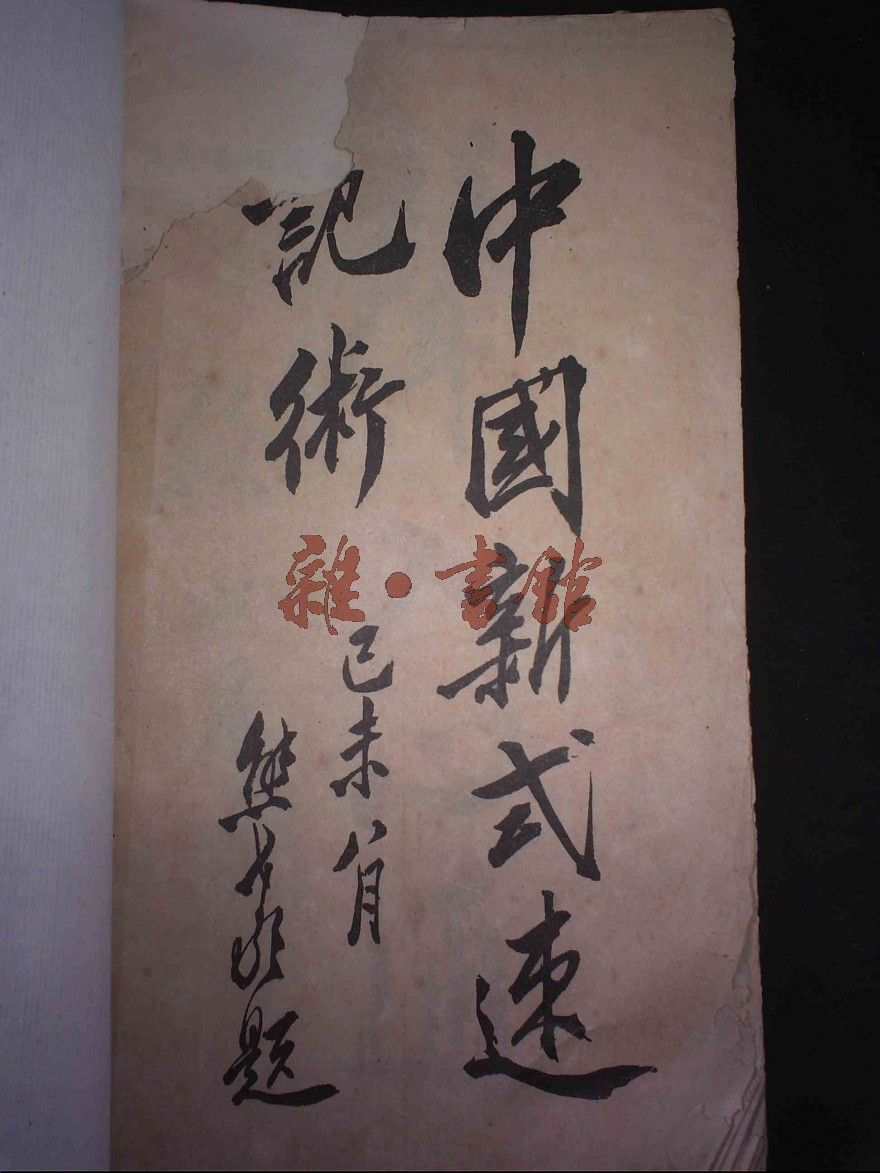 中國新式速
記術
己未八月
熊希齡題
雜·書館